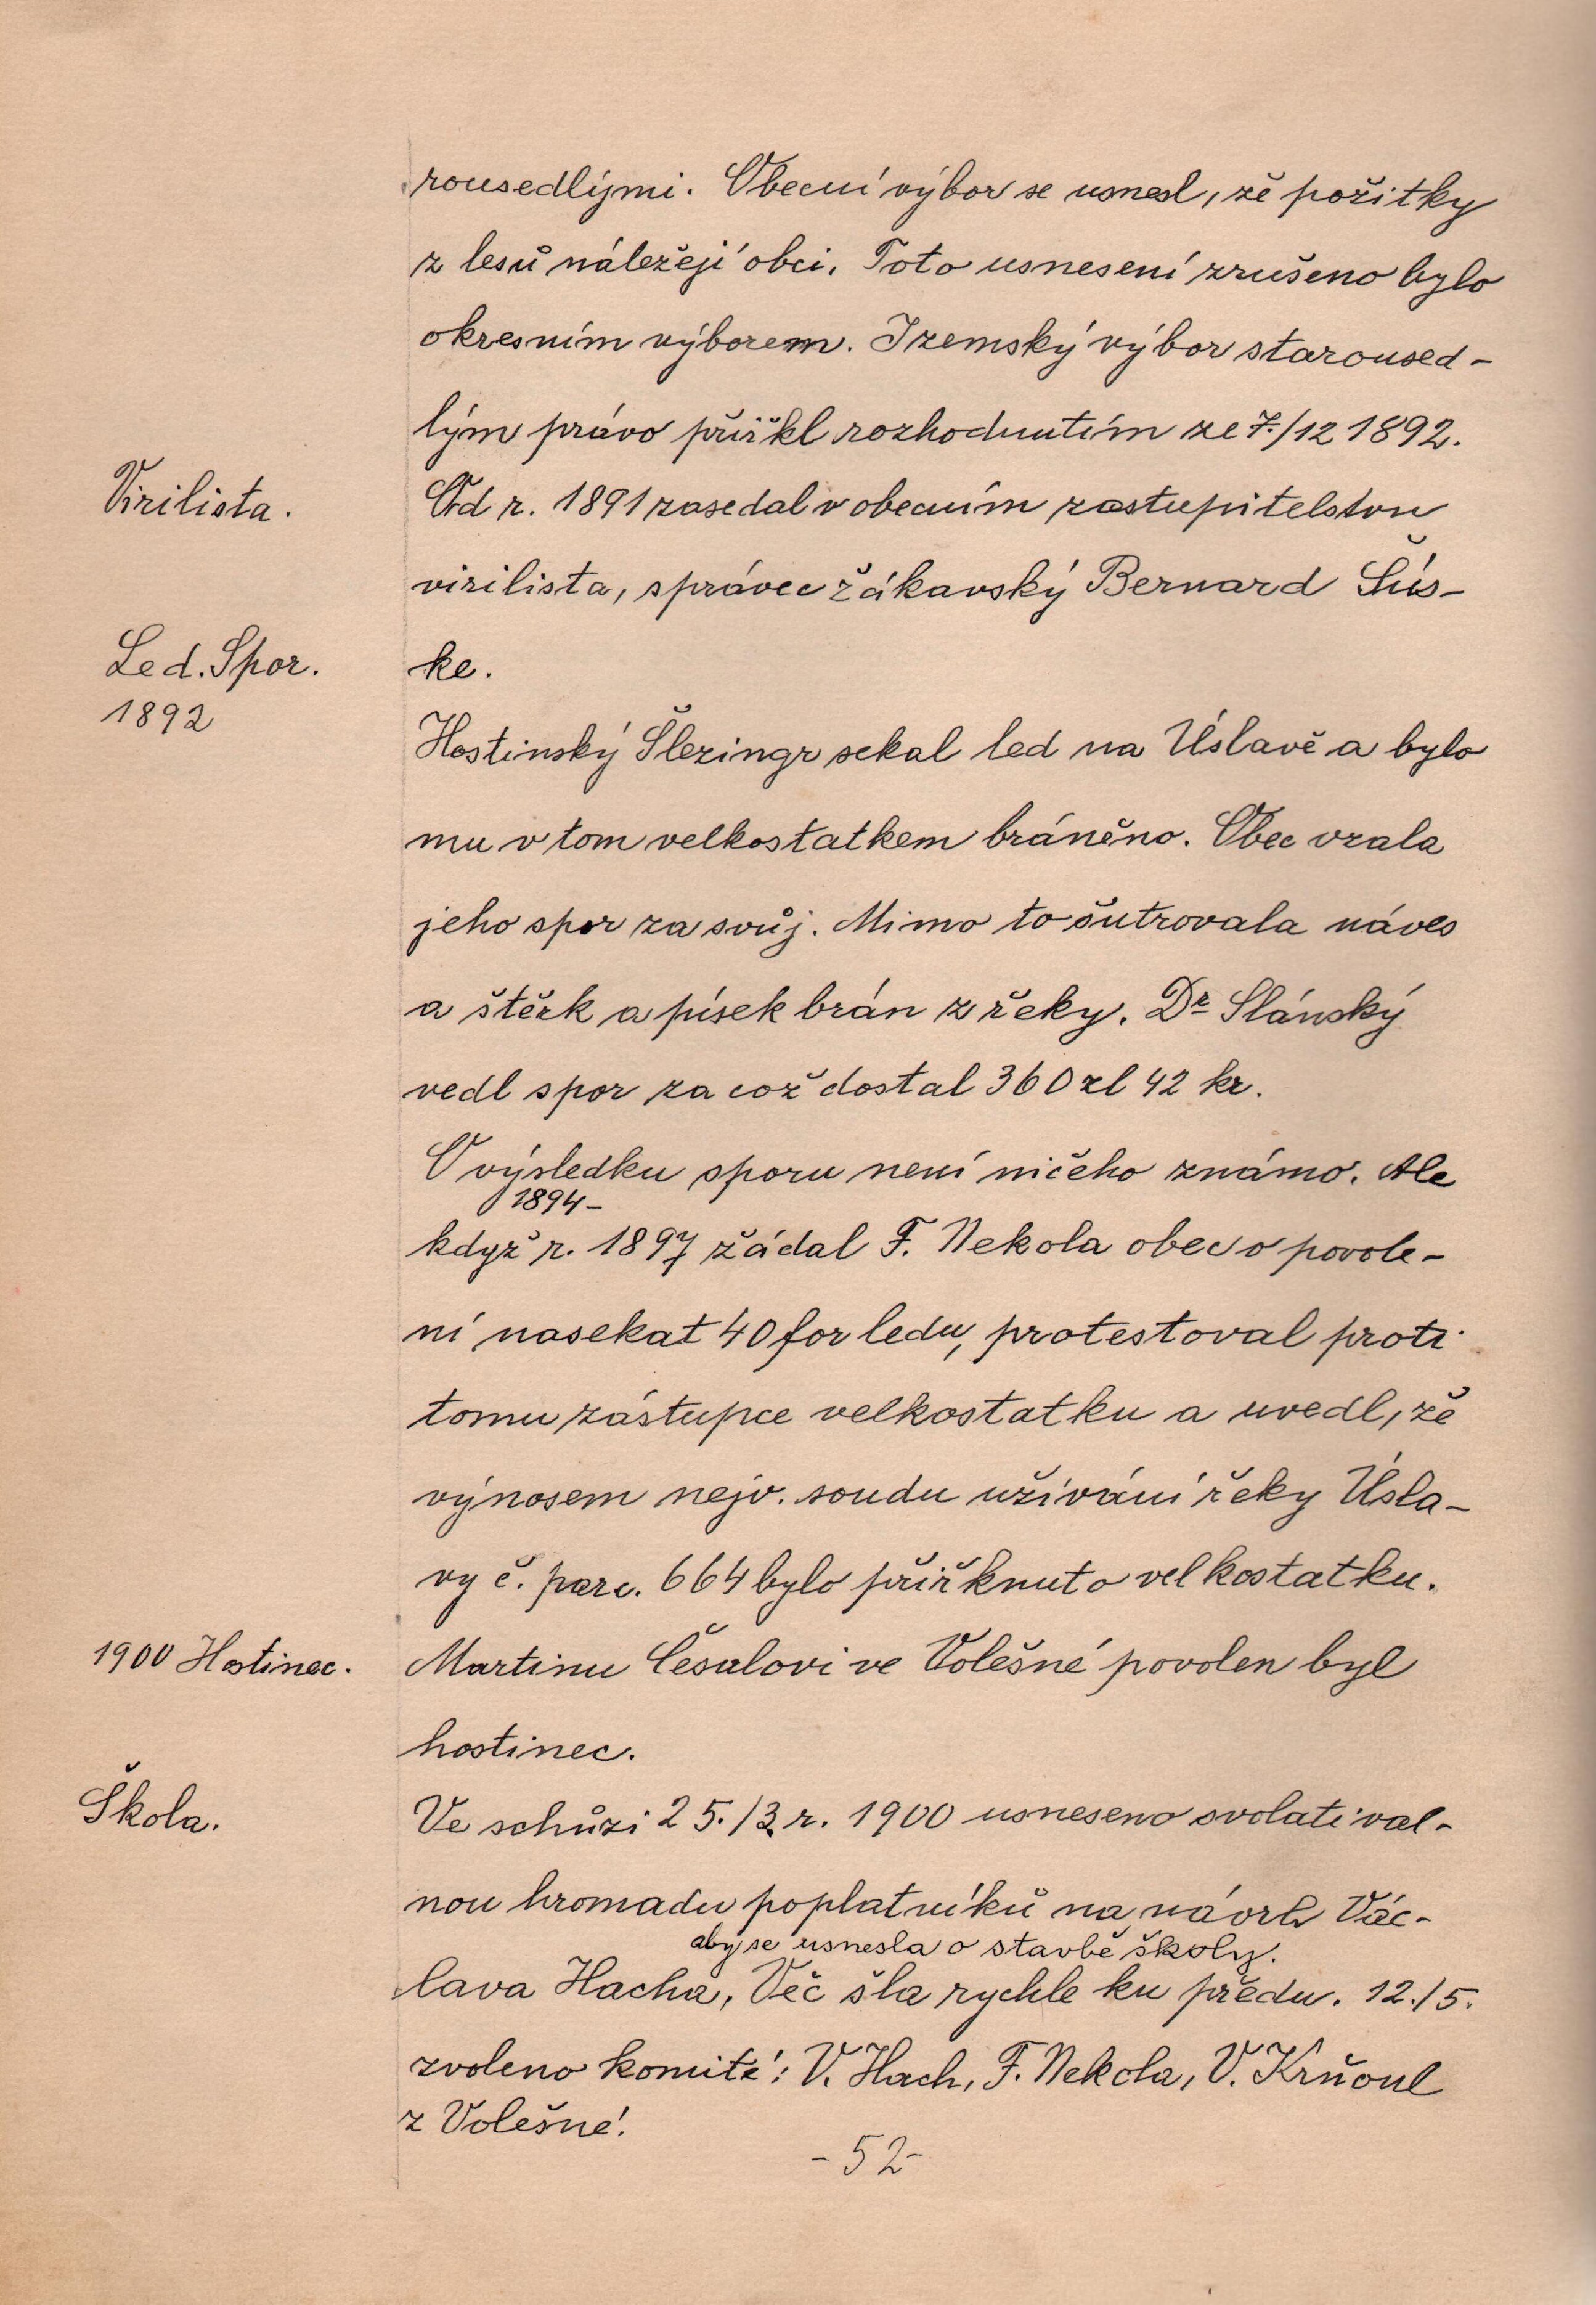 rousedlými. Obecní výbor se usnesl, že požitky
z lesů náležejí obci. Toto usnesení zrušeno bylo
okresním výborem. I zemský výbor staroused-
lým právo přiřkl rozhodnutím ze 7./12 1892.
Virilista.
Od r. 1891 zasedal v obecním zastupitelstvu
virilista, správce žákavský Bernard Šüs-
Led. Spor.
ke.
1892
Hostinský Šlezingr sekal led na Úslavě a bylo
mu v tom velkostatkem bráněno. Obec vzala
jeho spor za svůj. Mimo to šutrovala náves
a štěrk a písek brán z řeky. Dr Slánský
vedl spor za což dostal 360 zl 42 kr.
O výsledku sporu není ničeho známo. Ale
1894-
když r. 1897 žádal F. Nekola obec o povole-
ní nasekat 40 for ledu, protestoval proti
tomu zástupce velkostatku a uvedl, že
výnosem nejv. soudu užívání řeky Úsla-
vy č. parc. 664 bylo přiřknuto velkostatku.
1900 Hostinec.
Martinu Česalovi ve Volešné povolen byl
hostinec.
Škola.
Ve schůzi 25./3. r. 1900 usneseno svolati val-
nou hromadu poplatníků na návrh Vác-
aby se usnesla o stavbě školy.
lava Hacha, Věc šla rychle ku předu. 12./5.
zvoleno komité: V. Hach, F. Nekola, V. Krňoul
z Volešné.
-52-